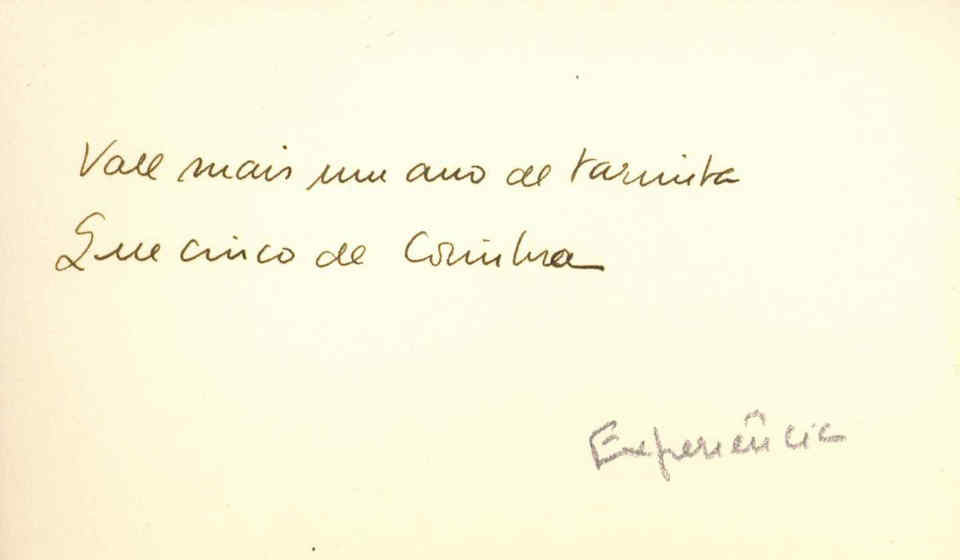 Vale mais um ano de tarimba
Que cinco de Coimbra
Experiência